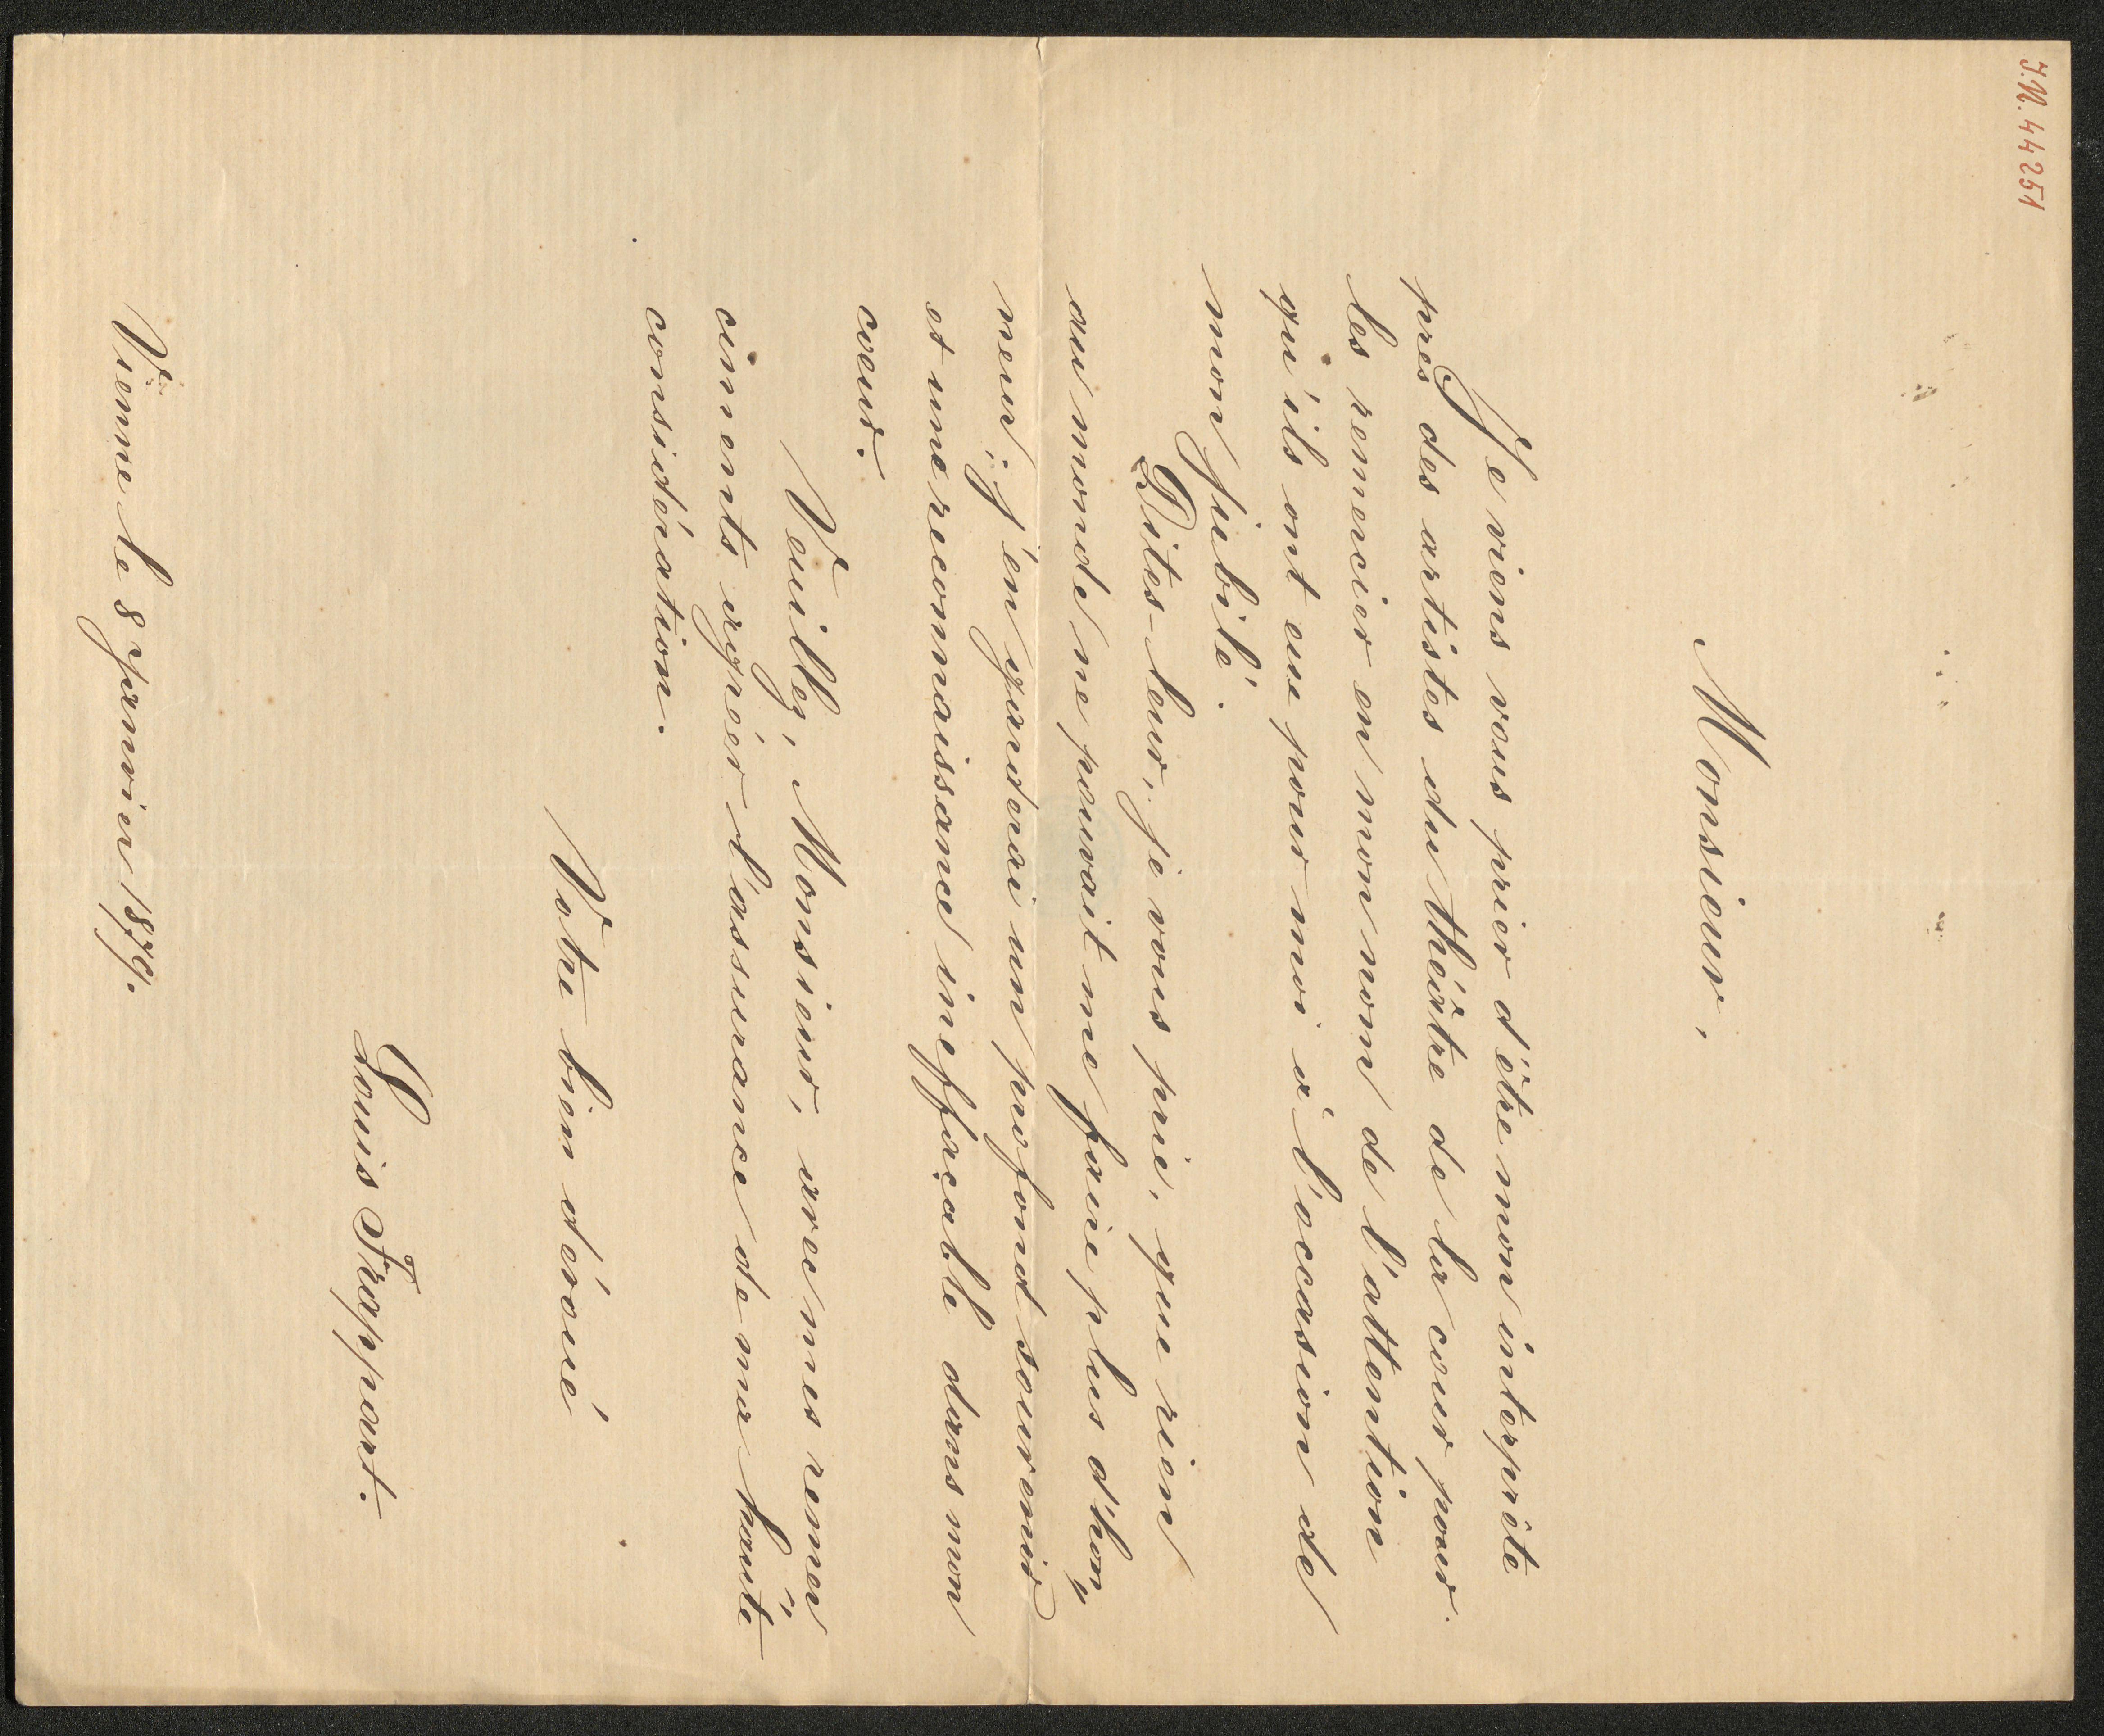 J.N. 44251
Monsieur,
Je viens vous prier d'être mon interprête
près des artistes du théâtre de la cour pour
les remercier en mon nom de l'attention
qu'ils ont eue pour moi à l'occasion de
mon jubilé.
Dites-leur, je vous prie, que rien
au monde ne pouvait me faire plus d'hon„
neur; j'en garderai un profond souvenir
et une reconnaissance ineffaçable dans mon
coeur.
Veuillez, Monsieur, avec mes remer„
ciments agréer l'assurance de ma haute
considération.
Votre bien dévoué
Louis Frappart.
Vienne le 8 janvier 1879.